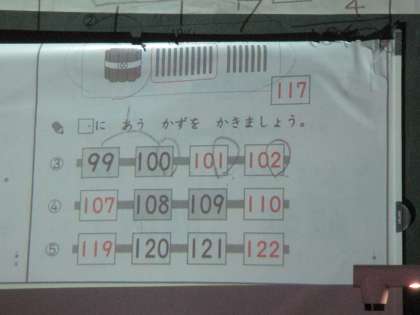 100
117
□に あう かずを かきましょう。
③ 99 100 101 102
④ 107 108 109 110
⑤ 119 120 121 122